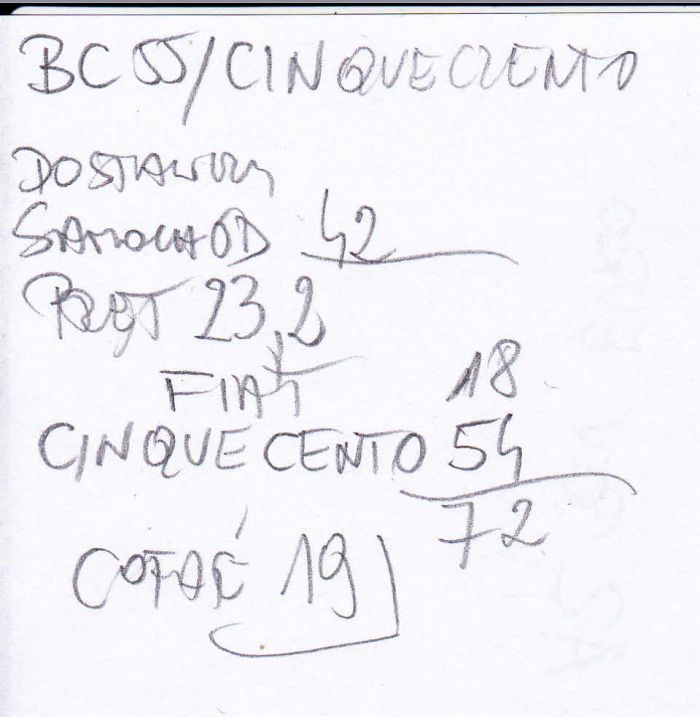 BC 55/CINQUECENTO
DOSTAWCZY
SAMOCHÓD 42
PRĘT 23,2
FIAT 18
CINQUECENTO 54
72
COFAĆ 19